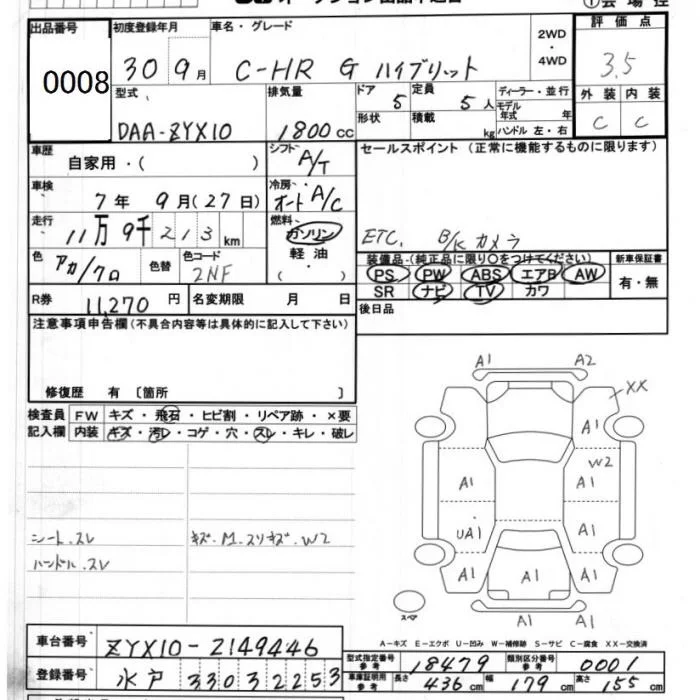 出品番号 0008
初度登録年月 30 9月
車名・グレード C-HR G ハイブリット
2WD・4WD
評価点 3.5
外装 C 内装 C
型式 DAA-ZYX10
排気量 1800cc
ドア 5 定員 5人
形状 積載 kg
ディーラー・並行
モデル年式 年
ハンドル 左・右
車歴 自家用・( )
シフト A/T
セールスポイント (正常に機能するものに限ります)
ETC. B/Kカメラ
車検 7年 9月(27日)
冷房 オート A/C
走行 11万9千213km
燃料 ガソリン 軽油 ・( )
色 アカ/クロ 色替 色コード 2NF
装備品-(純正品に限り○をつけてください)
PS PW ABS エアB AW
SR ナビ TV カワ
新車保証書 有・無
R券 11,270円 名変期限 月 日
後日品
注意事項申告欄(不具合内容等は具体的に記入して下さい)
修復歴 有 〔箇所 〕
検査員記入欄
FW キズ・飛石・ヒビ割・リペア跡・×要
内装 キズ・汚レ・コゲ・穴・スレ・キレ・破レ
シート.スレ
ハンドル.スレ
キズ.M.スリキズ.W2
A1 A2
XX
A1
W2
A1 A1
UA1 A1
A1 A1 A1
A1
スペア
A-キズ E-エクボ U-凹み W-補修跡 S-サビ C-腐食 XX-交換済
車台番号 ZYX10-2149446
登録番号 水戸 330 す 2253
型式指定番号 参考 18479 類別区分番号 参考 0001
車庫証明用 参考 長さ 436cm 幅 179cm 高さ 155cm